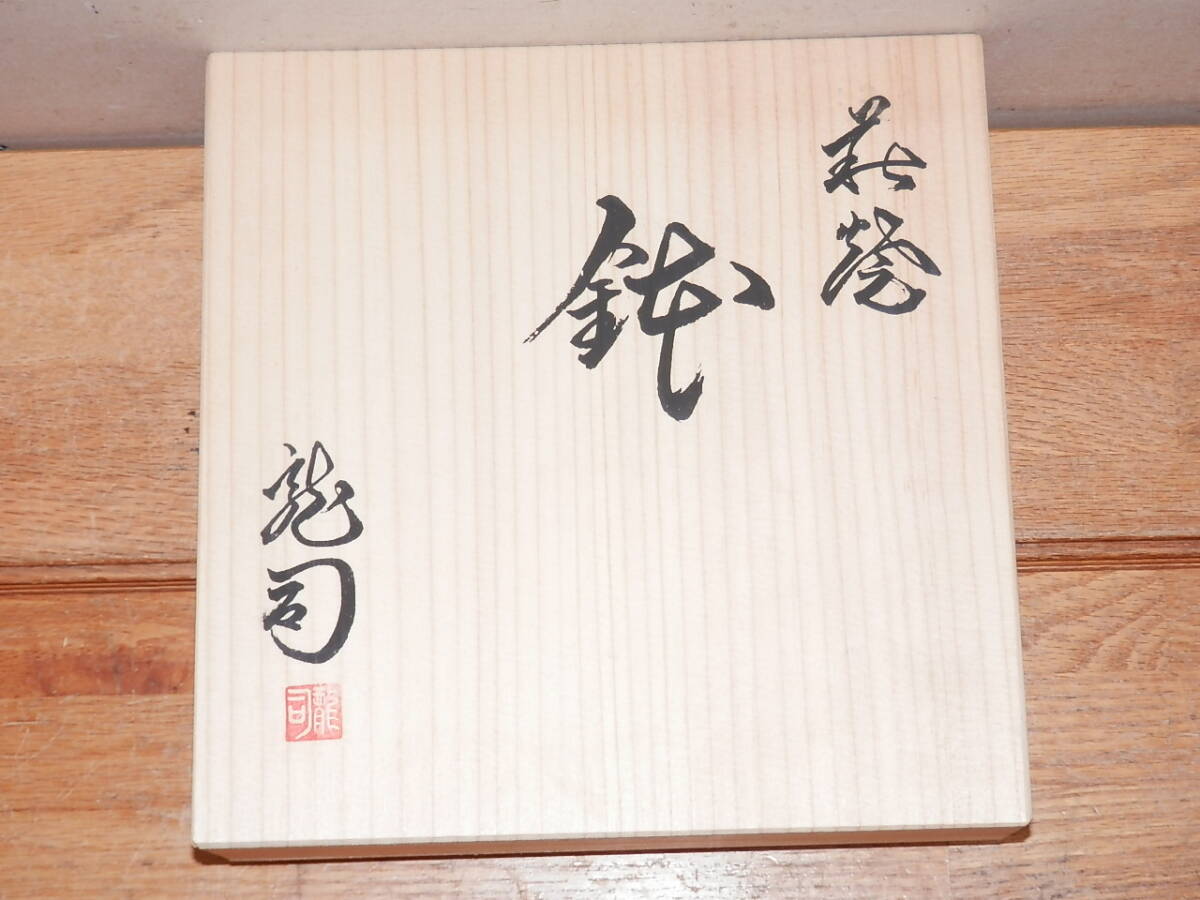 萩焼
鉢
龍司
龍司